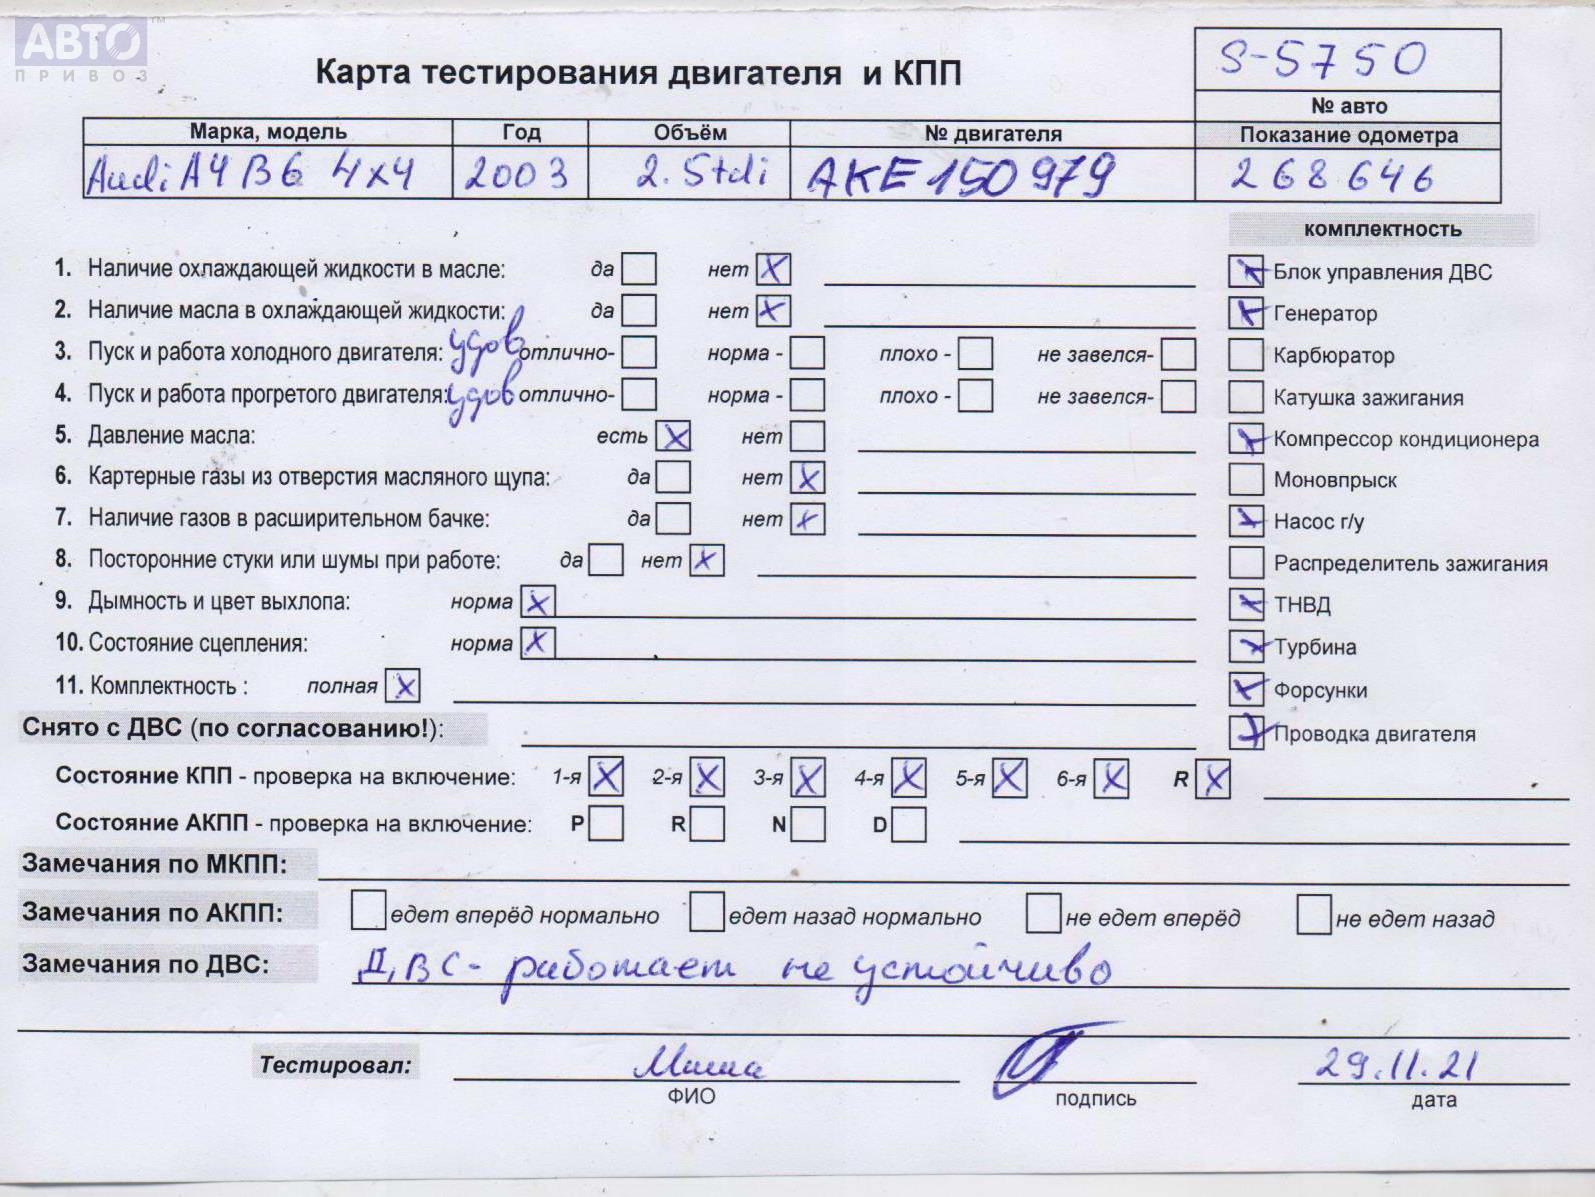 АВТО ™
ПРИВОЗ
Карта тестирования двигателя и КПП
S-5750
№ авто
Марка, модель Год Объём № двигателя Показание одометра
Audi A4 B6 4x4 2003 2.5tdi AKE150979 268646
комплектность
1. Наличие охлаждающей жидкости в масле: да нет X
Блок управления ДВС X
2. Наличие масла в охлаждающей жидкости: да нет X
Генератор X
3. Пуск и работа холодного двигателя: удов отлично- норма - плохо - не завелся-
Карбюратор
4. Пуск и работа прогретого двигателя: удов отлично- норма - плохо - не завелся-
Катушка зажигания
5. Давление масла: есть X нет
Компрессор кондиционера X
6. Картерные газы из отверстия масляного щупа: да нет X
Моновпрыск
7. Наличие газов в расширительном бачке: да нет X
Насос г/у X
8. Посторонние стуки или шумы при работе: да нет X
Распределитель зажигания
9. Дымность и цвет выхлопа: норма X
ТНВД X
10. Состояние сцепления: норма X
Турбина X
11. Комплектность : полная X
Форсунки X
Снято с ДВС (по согласованию!):
Проводка двигателя X
Состояние КПП - проверка на включение: 1-я X 2-я X 3-я X 4-я X 5-я X 6-я X R X
Состояние АКПП - проверка на включение: P R N D
Замечания по МКПП:
Замечания по АКПП: едет вперёд нормально едет назад нормально не едет вперёд не едет назад
Замечания по ДВС: ДВС - работает не устойчиво
Тестировал: Миша 29.11.21
ФИО подпись дата